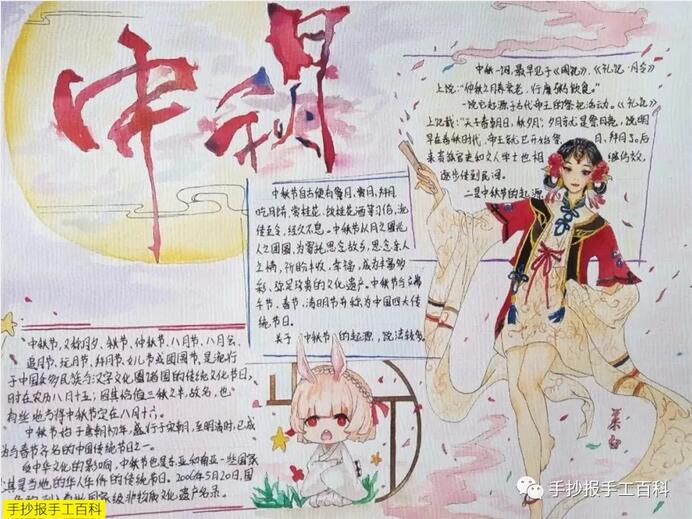 中秋
中秋一词,最早见于《周礼》,《礼记·月令》
上说:"仲秋之月养衰老,行糜粥饮食。"
一说它起源于古代帝王的祭祀活动。《礼记》
上记载:"天子春朝日,秋夕月",夕月就是祭月亮,说明
早在春秋时代,帝王就已开始祭月、拜月了。后
来贵族官吏和文人学士也相继仿效,
逐步传到民间。
二是中秋节的起源
中秋节自古便有祭月、赏月、拜月
吃月饼、赏桂花、饮桂花酒等习俗,流
传至今,经久不息。中秋节以月之圆兆
人之团圆,为寄托思念故乡,思念亲人
之情,祈盼丰收、幸福,成为丰富多
彩、弥足珍贵的文化遗产。中秋节与端
午节、春节、清明节并称为中国四大传
统节日。
关于"中秋节"的起源,说法较多
中秋节,又称月夕、秋节、仲秋节、八月节、八月会、
追月节、玩月节、拜月节、女儿节或团圆节,是流行
于中国众多民族与汉字文化圈诸国的传统文化节日,
时在农历八月十五;因其恰值三秋之半,故名,也
有些地方将中秋节定在八月十六。
中秋节始于唐朝初年,盛行于宋朝,至明清时,已成
为与春节齐名的中国传统节日之一。
受中华文化的影响,中秋节也是东亚和南亚一些国家
尤其是当地的华人华侨的传统节日。2006年5月20日,国
非物质文化遗产名录。
手抄报手工百科
手抄报手工百科